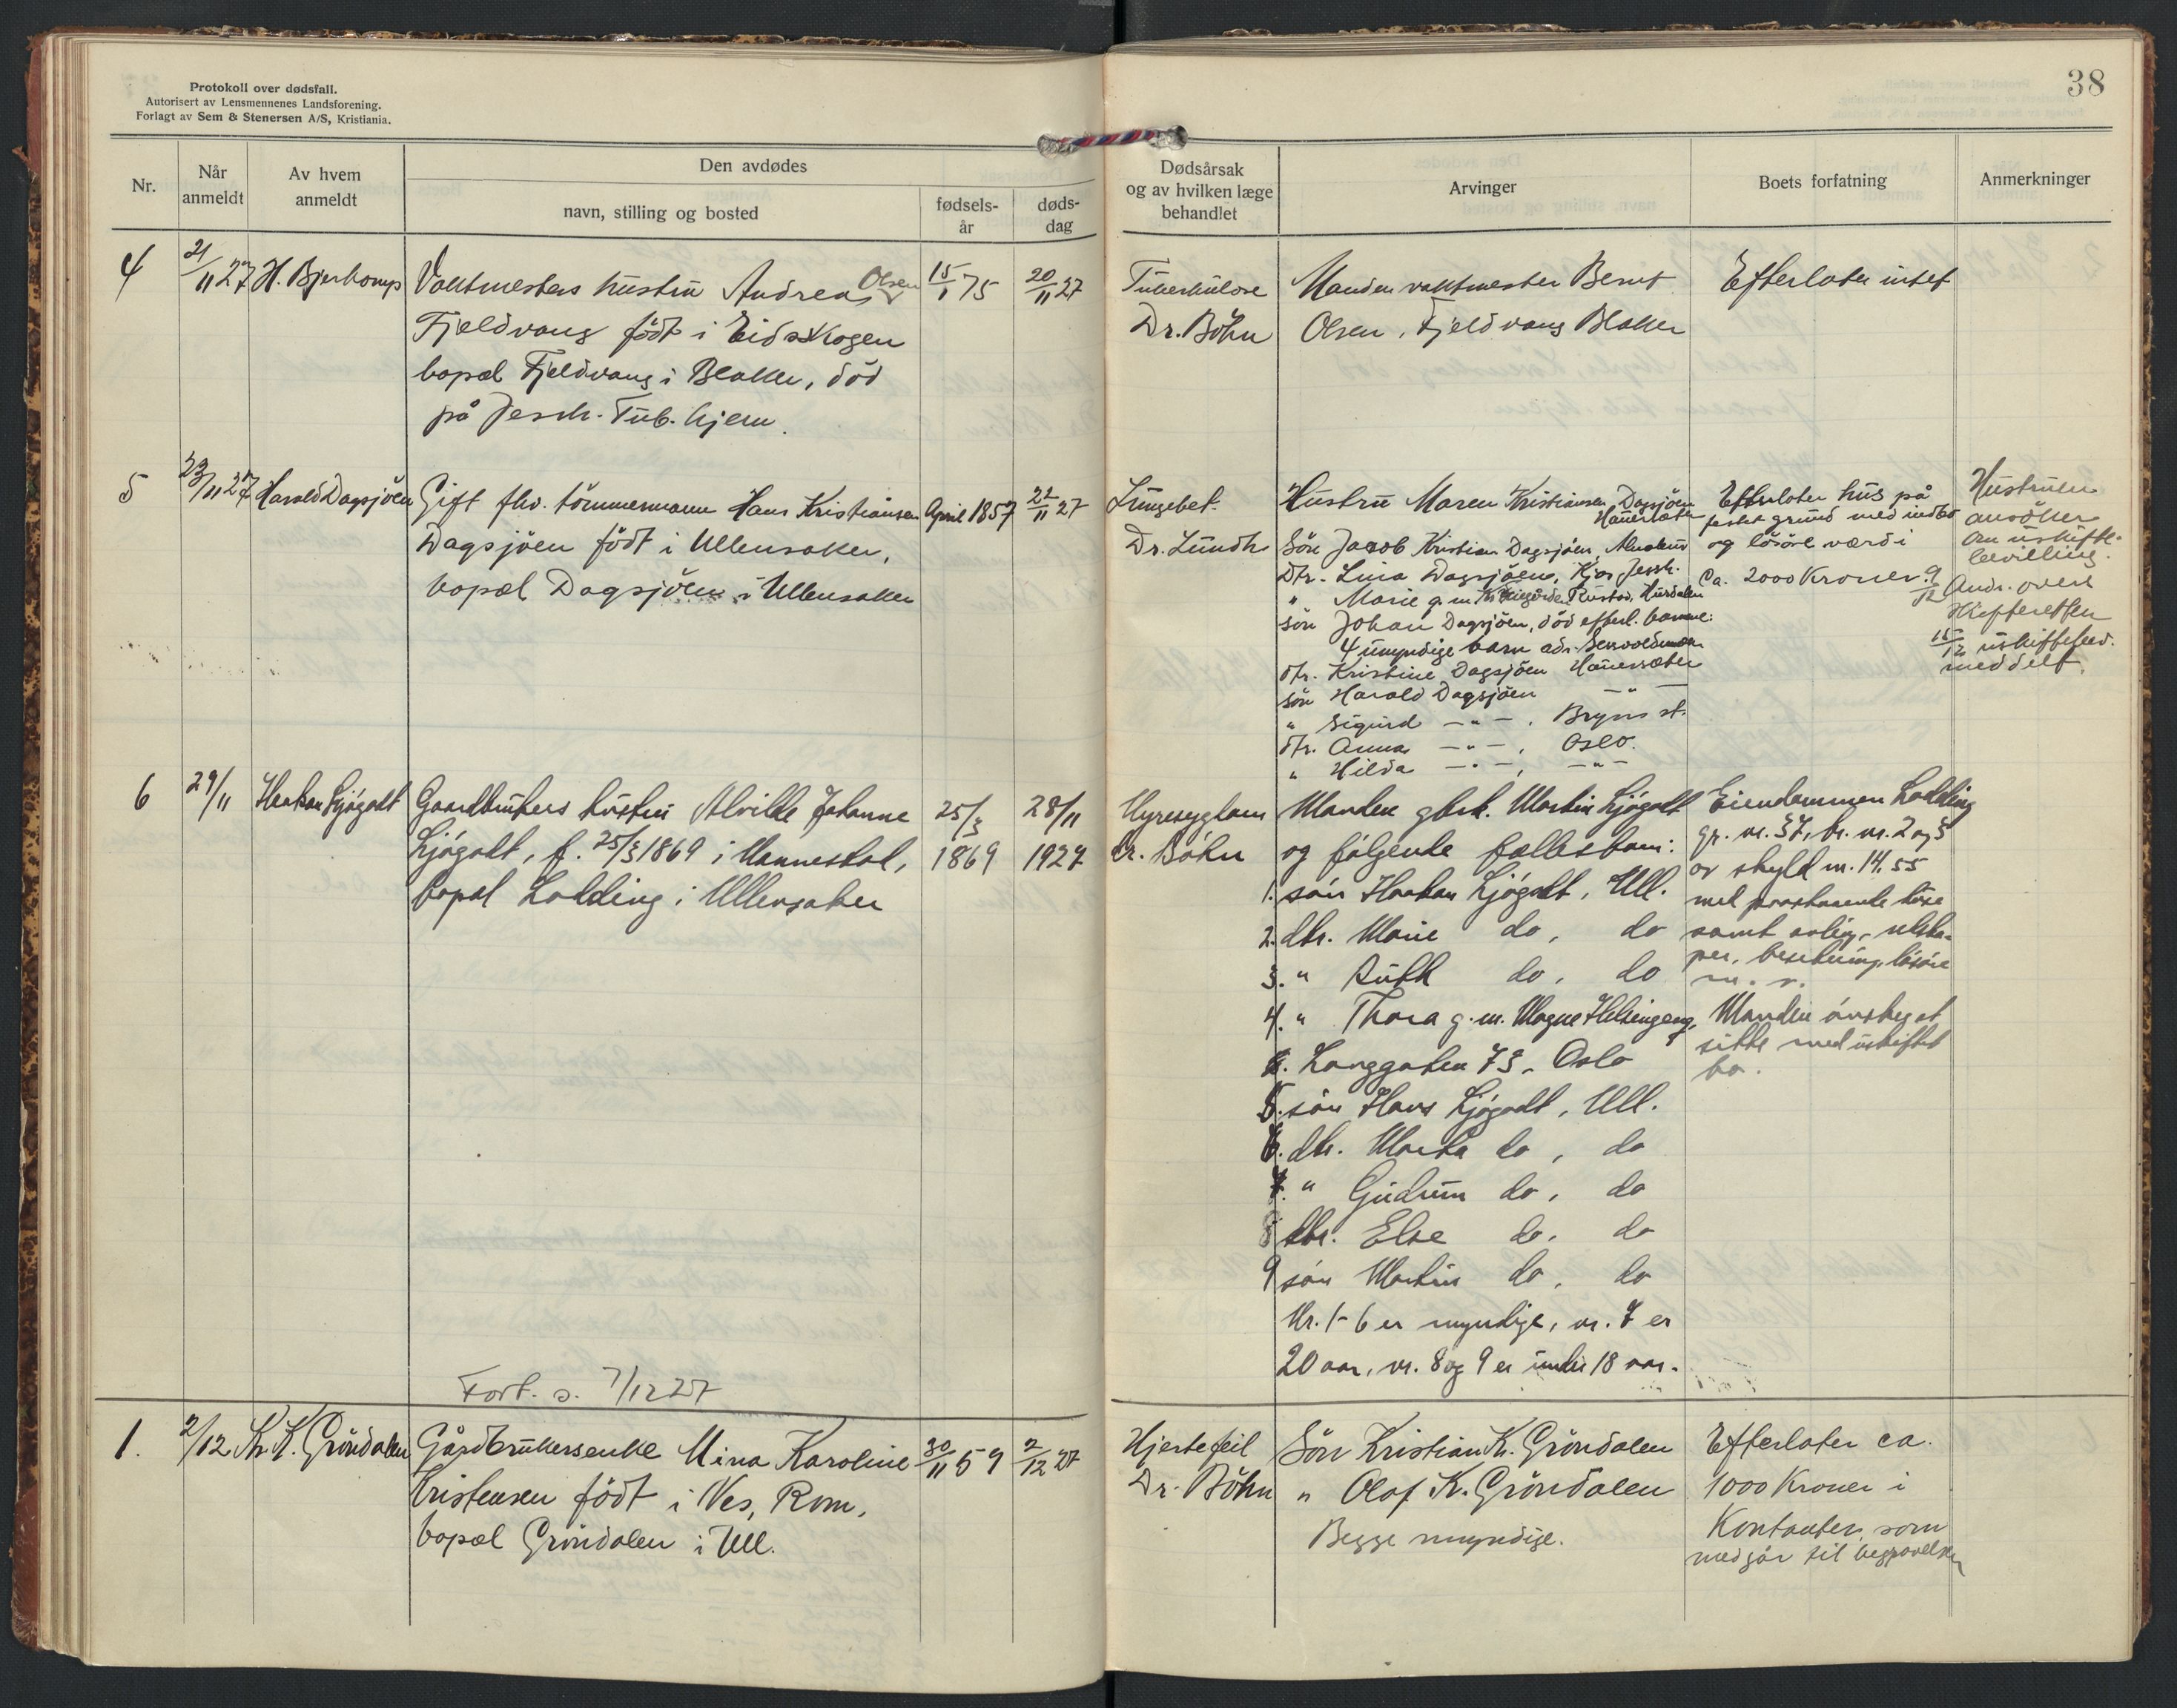 Protokoll over dødsfall.
Autorisert av Lensmennenes Landsforening.
Forlagt av Sem & Stenersen A/S, Kristiania.
38
Nr.
Når anmeldt
Av hvem anmeldt
Den avdødes
navn, stilling og bosted
fødsels-år
døds-dag
Dødsårsak og av hvilken læge behandlet
Arvinger
Boets forfatning
Anmerkninger
4
21/11 27
H. Bjerkomp
Vaktmesters hustru Andrea Olsen
Fjeldvang født i Eidskogen
bopæl Fjeldvang i Blaker, død
på Jessh. Tub. hjem.
15/1 75
20/11 27
Tuberkulose
Dr. Bøhn
Manden vaktmester Bernt
Olsen, Fjeldvang Blaker
Efterlater intet
5
23/11 27
Harald Dagsjøen
Gift fhv. tømmermann Hans Kristiansen
Dagsjøen født i Ullensaker,
bopæl Dagsjøen i Ullensaker
April 1857
22/11 27
Lungebet.
Dr. Lundh
Hustru Maren Kristiansen Dagsjøen
Hauersæter
Søn Jacob Kristian Dagsjøen,
Dtr. Lina Dagsjøen, Jessh.
" Marie g. m. Rustad, Hurdalen
søn Johan Dagsjøen, død efterl.
4 umyndige barn adr.
dtr. Kristine Dagsjøen Hauersæter
søn Harald Dagsjøen — " —
" Sigurd — " — , Bryns st.
dtr. Anna — " — , Oslo.
" Hilda — " — , — " —
Efterlater hus på
festet grund med indbo
og løsøre værdi
ca. 2000 Kroner.
Hustruen
ansøker
om uskifte-
bevilling.
9/12 Andr. overs
skifteretten
15/12 uskiftebev.
meddelt.
6
29/11
Haakon Ljøgodt
Gaardbrukers hustru Alvilde Johanne
Ljøgodt, f. 25/3 1869 i Mannestad,
bopæl Ladding i Ullensaker
25/3
1869
28/11
1927
Nyresygdom
dr. Bøhn
Manden gbrk. Martin Ljøgodt
og følgende fællesbarn:
1. søn Haakon Ljøgodt, Ull.
2. dtr. Marie do, do
3. " Ruth do, do
4. " Thora g. m. Magne Helsingeng,
Langgaten 73, Oslo
5. søn Hans Ljøgodt, Ull.
6. dtr. Marta do, do
7. " Gudrun do, do
8 dtr. Else do, do
9 søn Martin do, do
Nr. 1-6 er myndige, nr. 7 er
20 aar, nr. 8 og 9 er under 18 aar.
Eiendommen Ladding
gr. nr. 37, br. nr. 2 og 3
av skyld m. 14.55
med paastaaende
samt avling, redska-
per, besetning, løsøre
m. v.
Manden ønsker at
sitte med uskiftet
bo.
Fort. s. 7/12 27
1.
2/12
Kr. K. Grøndalen
Gårdbrukersenke Mina Karoline
Kristensen født i Nes, Rom.
bopæl Grøndalen i Ull.
30/11 59
2/12 27
Hjertefeil
Dr. Bøhn
Søn Kristian K. Grøndalen
" Olaf K. Grøndalen
Begge myndige.
Efterlater ca.
1000 Kroner i
Kontanter, som
medgår til begravelsen